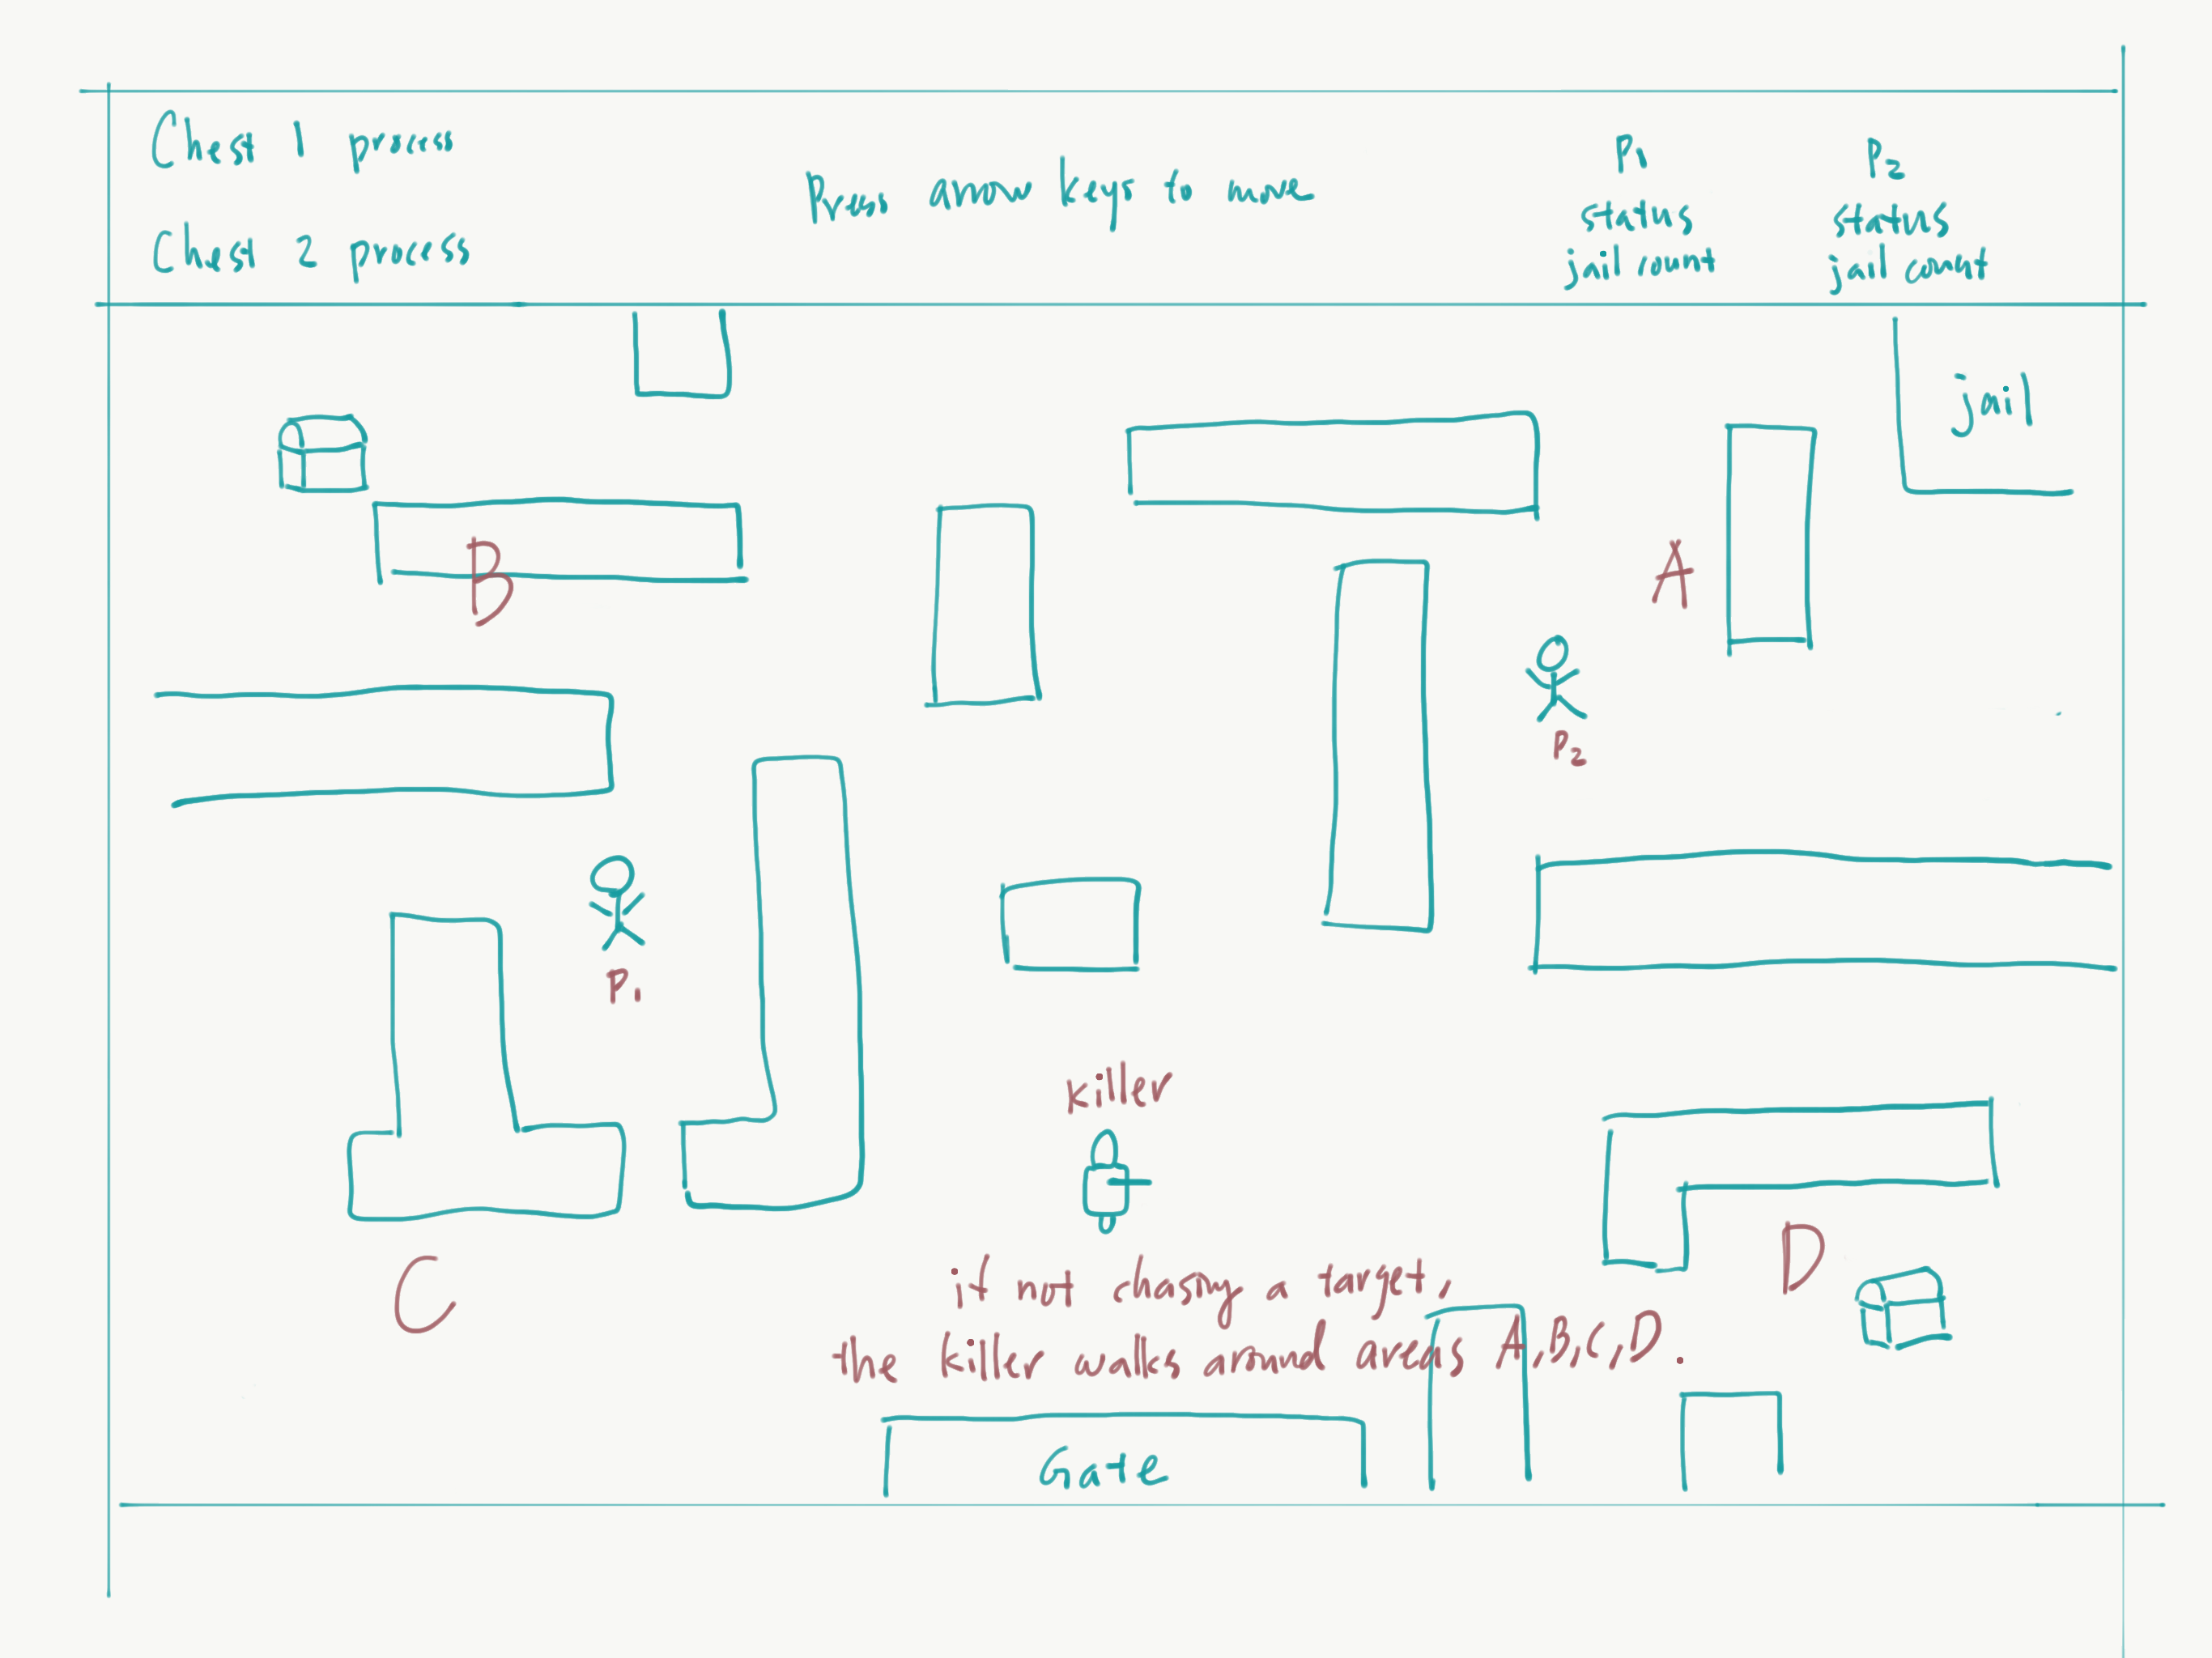 Chest 1 process
Chest 2 process
Press arrow keys to move
P1
status
jail count
P2
status
jail count
jail
B
A
P2
P1
killer
C
D
if not chasing a target,
the killer walks around areas A,B,C,D.
Gate